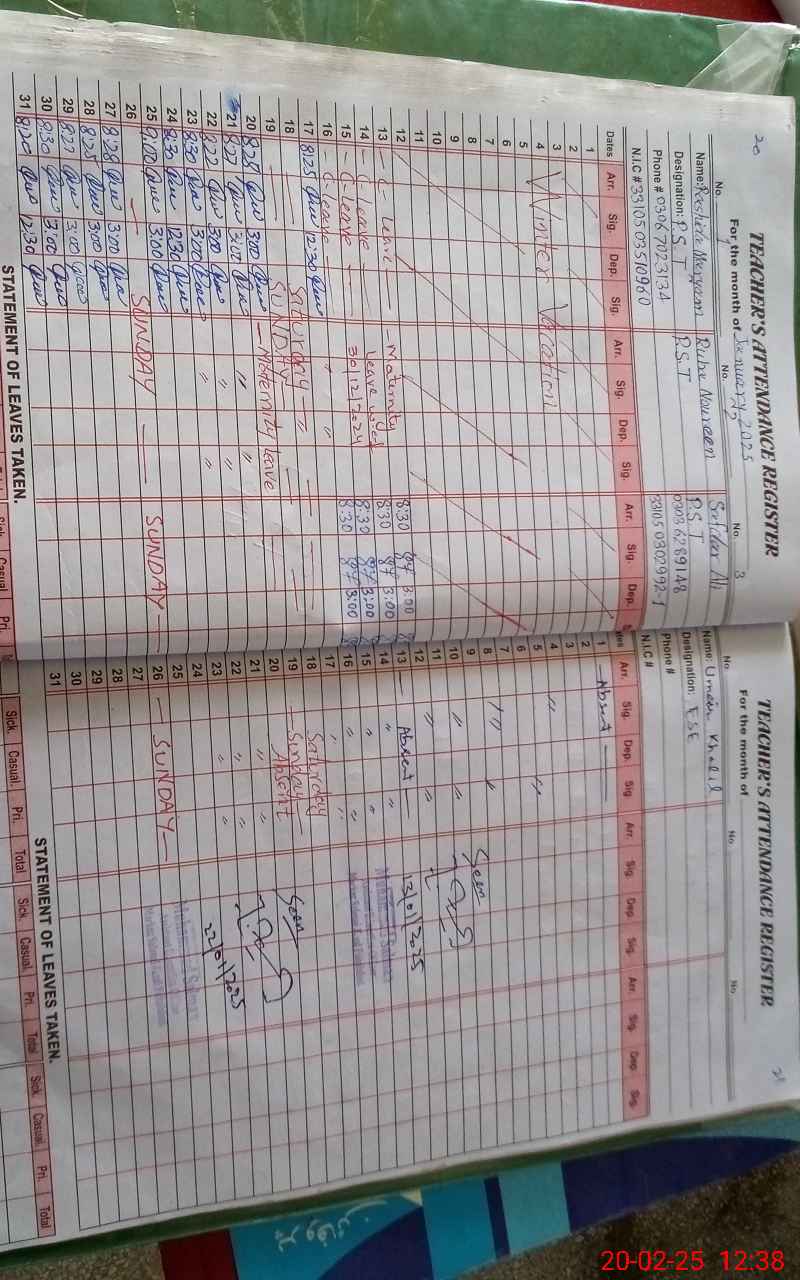 20
TEACHER'S ATTENDANCE REGISTER
For the month of January 2025
No. 1 No. 2 No. 3
Name: Rashida Maryam Ruba Noureen Safdar Ali
Designation: P.S.T P.S.T P.S.T
Phone # 03067023134 03036289148
N.I.C # 3310503510960 331050302992-1
Dates Arr. Sig. Dep. Sig. Arr. Sig. Dep. Sig. Arr. Sig. Dep.
1
2
3
4 Winter Vacation
5
6
7
8
9
10
11
12
13 — C- Leave — — Maternity 8:30 3:00
14 — C- Leave — Leave w.e.f 8:30 3:00
15 — C- Leave — 30/12/2024 8:30 3:00
16 — C- Leave — 〃 8:30 3:00
17 8:25 12:30 〃
18 Saturday
19 SUNDAY
20 8:25 3:00 — Maternity Leave
21 8:27 3:00 〃 〃
22 8:22 3:00 〃 〃
23 8:30 3:00 〃 〃
24 8:30 12:30
25 9:00 3:00
26 — SUNDAY — SUNDAY —
27 8:28 3:00
28 8:25 3:00
29 8:27 3:00
30 8:30 3:00
31 8:20 12:30
STATEMENT OF LEAVES TAKEN.
21
TEACHER'S ATTENDANCE REGISTER
For the month of
No No. No
Name: Umair Khalil
Designation: ESE
Phone #
N.I.C #
Arr. Sig. Dep. Sig. Arr. Sig. Dep Sig. Arr. Sig. Dep. Sig.
1 — Absent —
2
3
4 〃
5 〃
6
7
8 〃 〃
9
10 〃 〃 Seen
11 〃 〃
12
13 — Absent — 13/01/2025
14 〃 〃
15 〃 〃
16 〃 〃
17 〃 〃
18 Saturday
19 — Sunday — Seen
20 Absent
21 〃 〃
22 〃 〃 22/01/2025
23 〃 〃
24
25
26 — SUNDAY —
27
28
29
30
31
STATEMENT OF LEAVES TAKEN.
Sick. Casual. Pri. Total Sick. Casual. Pri. Total Sick. Casual. Pri. Total
20-02-25 12:38